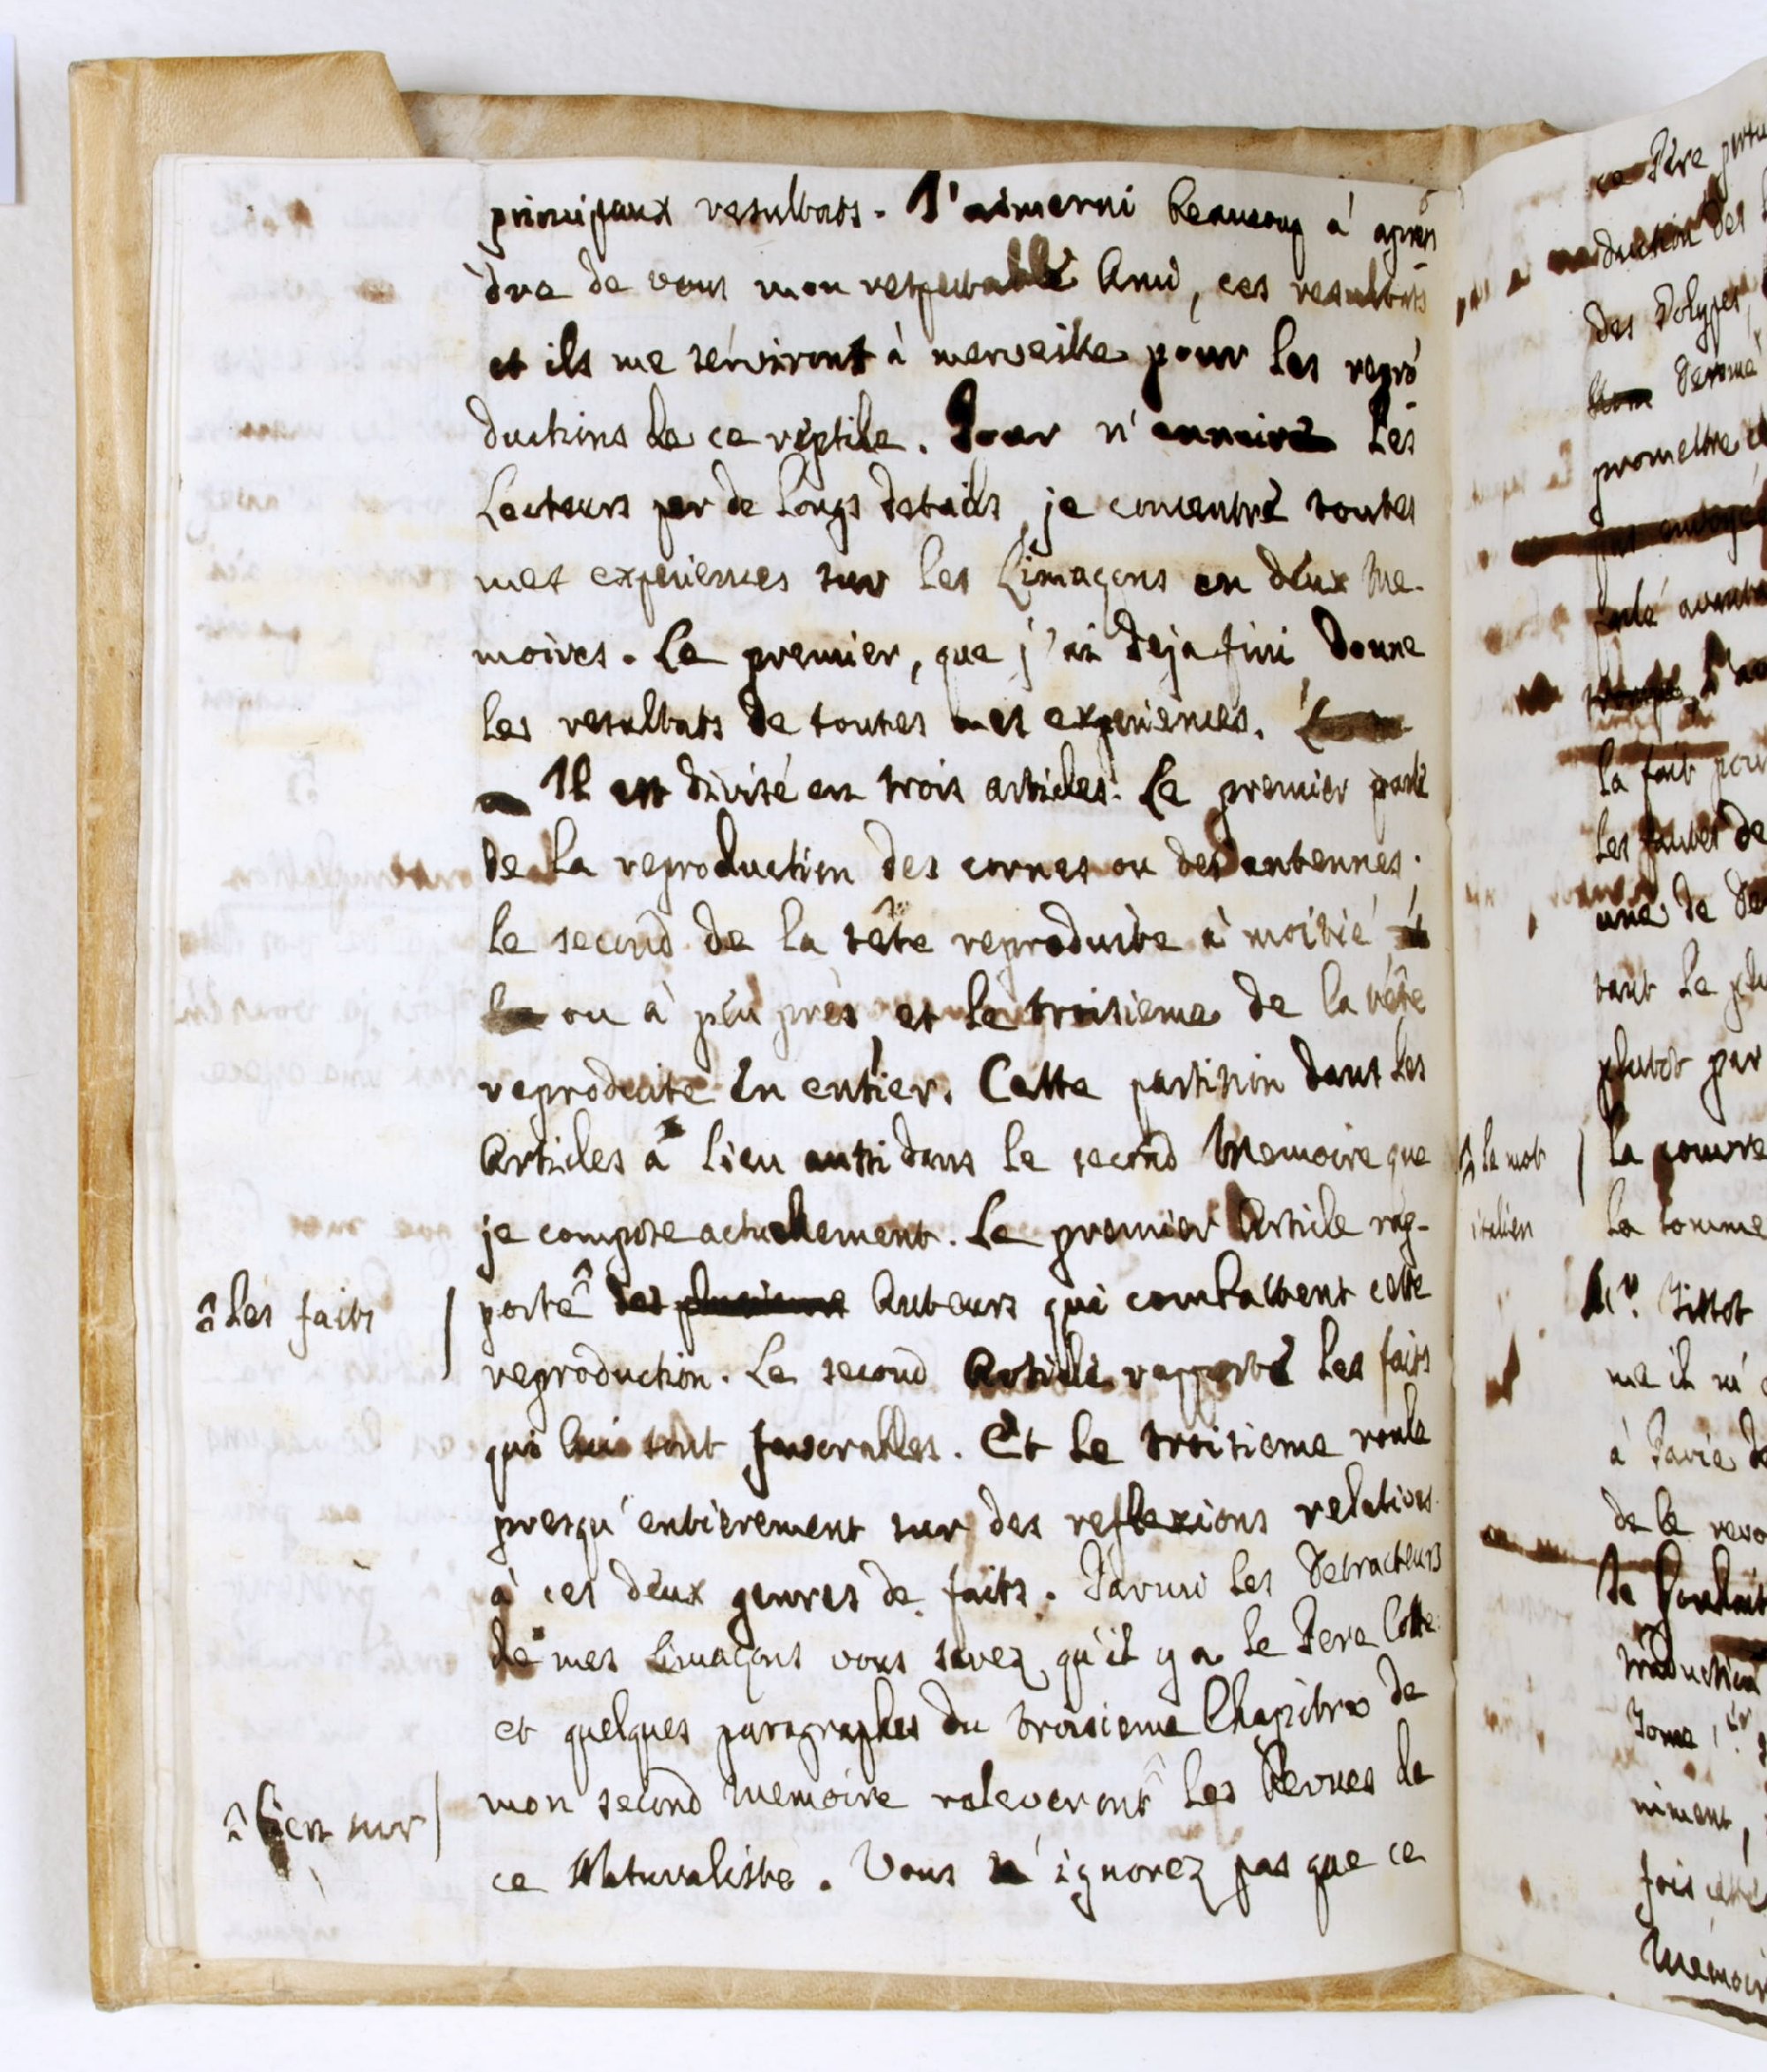 principaux resultats. J'aimerai beaucoup à apren
dre de vous mon respectable Ami, ces resultats
et ils me serviront à merveille pour les repro
ductions de ce reptile. Pour n'ennuire les
Lecteurs par de longs details, je concentre toutes
mes experiences sur les Limaçons en deux Me-
moires. Le premier, que j'ai deja fini donne
les resultats de toutes mes experiences.
Il est divisé en trois articles. Le premier parle
de la reproduction des cornes ou des antennes.
le second de la tête reproduite à moitié
ou à peu près et le troisieme de la tête
reproduite en entier. Cette partition dans les
Articles a lieu aussi dans le second Memoire que
je compose actuellement. Le premier Article rap-
â les faits
porte^ des Auteurs qui combattent cette
reproduction. Le second Article rapporte les faits
qui lui sont favorables. Et le troisieme roule
presqu'entierement sur des reflexions relatives
à ces deux genres de faits. Parmi les Detracteurs
de mes Limaçons vous savez qu'il y a le Pere Cotte
et quelques paragraphes du troisieme Chapitre de
mon second Memoire releveront^ les Bevues de
â bien sur
ce Naturaliste. Vous n'ignorez pas que ce
ce Père
duction des
des Polypes,
promettre
la fait pour
les fautes de
une de
tant le plu
plutot par
â le mot
italien
la
la somme
Mr. Tissot
me il m'
à Pavie de
de le
traduction
Tome 1er.
niment,
fois cette
Memoir